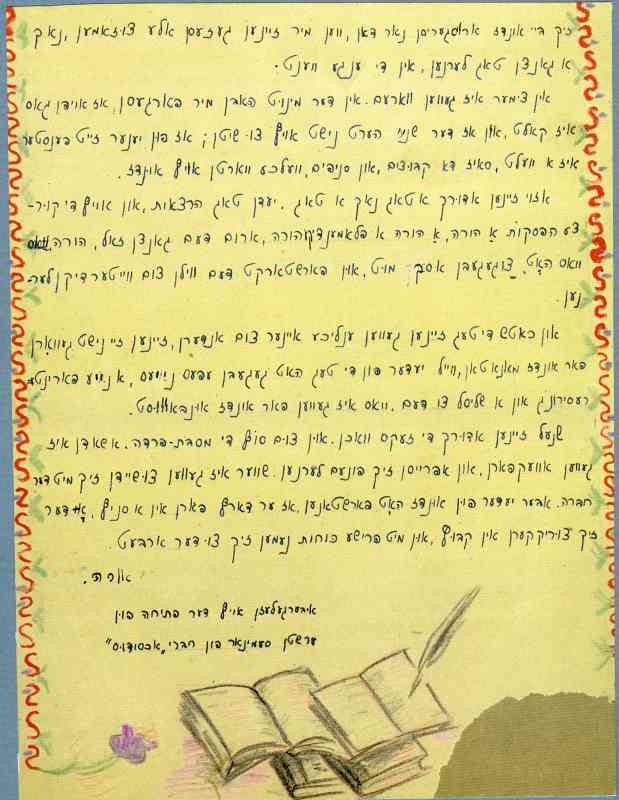 זיך ביי אונדז ארויסגעריסן נאר דאן, ווען מיר זיינען געזעסן אלע צוזאמען, נאך
א גאנצן טאג לערנען, אין די ענגע ווענט.
אין צימער איז געווען ווארעם. אין דער מינויט האבן מיר פארגעסן, אז אויפן גאס
איז קאלט, און אז דער שניי הערט נישט אויף צו שיטן; אז פון יענער זייט פענסטער
איז א וועלט, ס'איז דא קבוצים, און סניפים, וועלכע ווארטן אויף אונדז.
אזוי זיינען אדורך א טאג נאך א טאג. יעדן טאג הרצאות, און אויף די קיר-
צע הפסקות א הורה, א הורה א פלאמענדיקע הורה, ארום דעם גאנצן זאל, הורה,
וואס האט צוגעגעבן אסך מוט, און פארשטארקט דעם ווילן צום ווייטערדיקן לער-
נען.
און כאטש די טעג זיינען געווען ענליכע איינער צום אנדערן, זיינען זיי נישט געווארן
פאר אונדז מאנאטאן, ווייל יעדער פון די טעג האט געגעבן עפעס נייעס, א נייע פאראינטע-
רעסירונג און א שליסל צו דעם, וואס איז געווען פאר אונדז אונבאוואוסט.
שנעל זיינען אדורך די זעקס וואכן. און צום סוף די מסבת-פרדה. א שאדן איז
געווען אוועקפארן. און אפרייסן זיך פונעם לערנען. שווער איז געווען צושיידן זיך מיט דער
חברה. אבער יעדער פון אונדז האט פארשטאנען, אז ער דארף פארן אין א סניף, אדער
זיך צוריקקערן אין קבוץ, און מיט פרישע כוחות נעמען זיך צו דער ארבעט.
איבערגעלעזן אויף דער פתיחה פון
ערשטן סעמינאר פון חברי "אכסודוס"